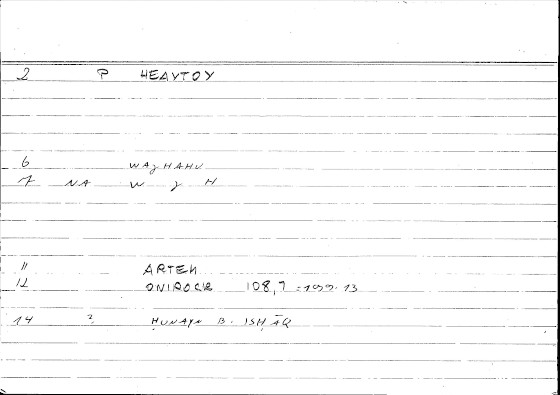 2 P HEAVTOY
6 WAJHAHU
7 NA W J H
11 ARTEM
12 ONIROCR 108,7 = 199.13
14 ? ḤUNAYN B. ISḤĀQ